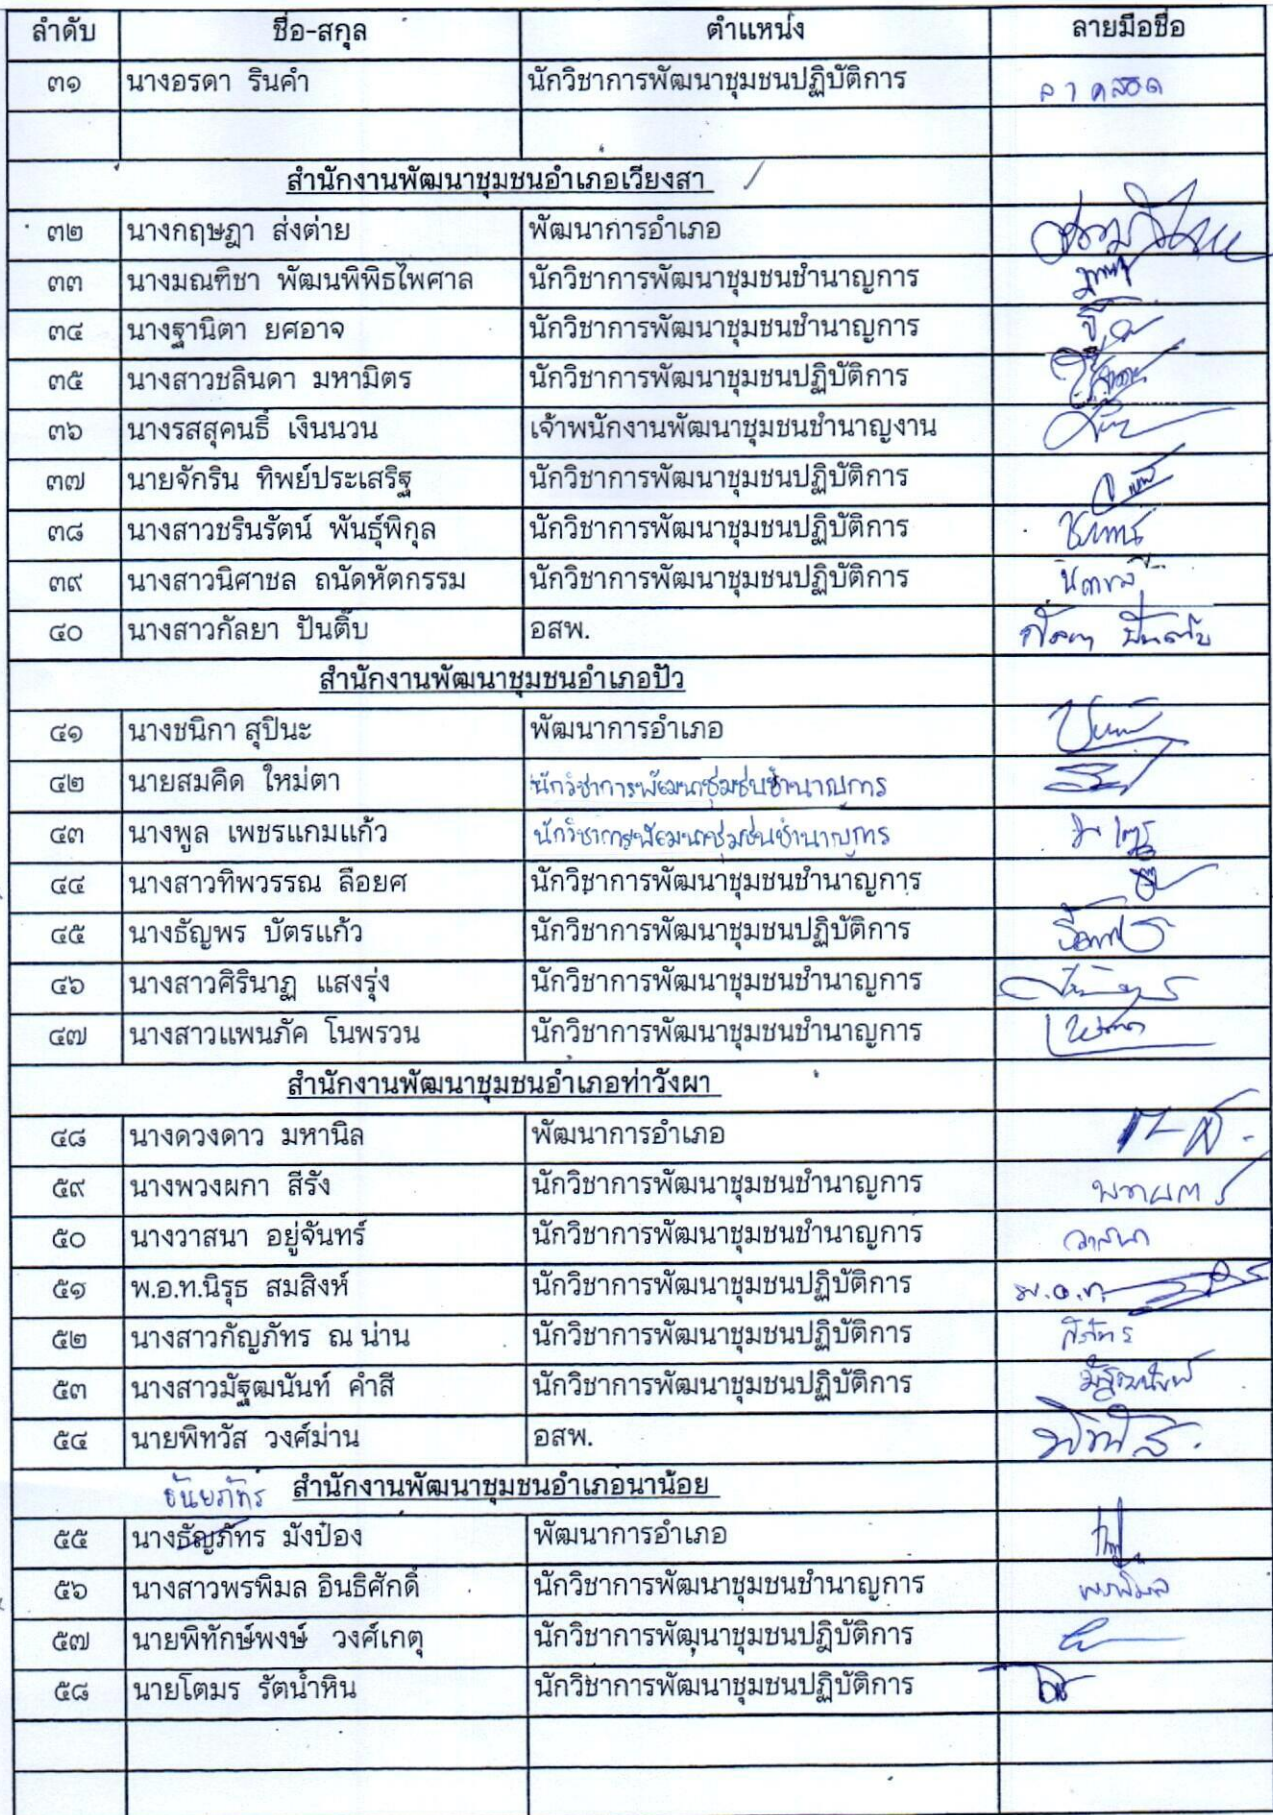 ลำดับ ชื่อ-สกุล ตำแหน่ง ลายมือชื่อ
๓๑ นางอรดา รินคำ นักวิชาการพัฒนาชุมชนปฏิบัติการ ลาคลอด
สำนักงานพัฒนาชุมชนอำเภอเวียงสา
๓๒ นางกฤษฎา ส่งต่าย พัฒนาการอำเภอ
๓๓ นางมณฑิชา พัฒนพิพิธไพศาล นักวิชาการพัฒนาชุมชนชำนาญการ
๓๔ นางฐานิตา ยศอาจ นักวิชาการพัฒนาชุมชนชำนาญการ
๓๕ นางสาวชลินดา มหามิตร นักวิชาการพัฒนาชุมชนปฏิบัติการ
๓๖ นางรสสุคนธิ์ เงินนวน เจ้าพนักงานพัฒนาชุมชนชำนาญงาน
๓๗ นายจักริน ทิพย์ประเสริฐ นักวิชาการพัฒนาชุมชนปฏิบัติการ
๓๘ นางสาวชรินรัตน์ พันธุ์พิกุล นักวิชาการพัฒนาชุมชนปฏิบัติการ
๓๙ นางสาวนิศาชล ถนัดหัตกรรม นักวิชาการพัฒนาชุมชนปฏิบัติการ นิศาชล
๔๐ นางสาวกัลยา ปันติ๊บ อสพ. กัลยา ปันติ๊บ
สำนักงานพัฒนาชุมชนอำเภอปัว
๔๑ นางชนิกา สุปินะ พัฒนาการอำเภอ
๔๒ นายสมคิด ใหม่ตา นักวิชาการพัฒนาชุมชนชำนาญการ
๔๓ นางพูล เพชรแกมแก้ว นักวิชาการพัฒนาชุมชนชำนาญการ
๔๔ นางสาวทิพวรรณ ลือยศ นักวิชาการพัฒนาชุมชนชำนาญการ
๔๕ นางธัญพร บัตรแก้ว นักวิชาการพัฒนาชุมชนปฏิบัติการ
๔๖ นางสาวศิรินาฏ แสงรุ่ง นักวิชาการพัฒนาชุมชนชำนาญการ
๔๗ นางสาวแพนภัค โนพรวน นักวิชาการพัฒนาชุมชนชำนาญการ
สำนักงานพัฒนาชุมชนอำเภอท่าวังผา
๔๘ นางดวงดาว มหานิล พัฒนาการอำเภอ
๕๙ นางพวงผกา สีรัง นักวิชาการพัฒนาชุมชนชำนาญการ
๕๐ นางวาสนา อยู่จันทร์ นักวิชาการพัฒนาชุมชนชำนาญการ วาสนา
๕๑ พ.อ.ท.นิรุธ สมสิงห์ นักวิชาการพัฒนาชุมชนปฏิบัติการ พ.อ.ท.
๕๒ นางสาวกัญภัทร ณ น่าน นักวิชาการพัฒนาชุมชนปฏิบัติการ
๕๓ นางสาวมัฐฒนันท์ คำสี นักวิชาการพัฒนาชุมชนปฏิบัติการ มัฐฒนันท์
๕๔ นายพิทวัส วงศ์ม่าน อสพ.
ธันยภัทร สำนักงานพัฒนาชุมชนอำเภอนาน้อย
๕๕ นางธัญภัทร มังป๋อง พัฒนาการอำเภอ
๕๖ นางสาวพรพิมล อินธิศักดิ์ นักวิชาการพัฒนาชุมชนชำนาญการ พรพิมล
๕๗ นายพิทักษ์พงษ์ วงศ์เกตุ นักวิชาการพัฒนาชุมชนปฏิบัติการ
๕๘ นายโตมร รัตน้ำหิน นักวิชาการพัฒนาชุมชนปฏิบัติการ